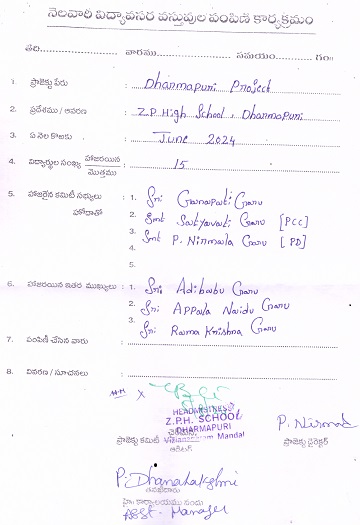 నెలవారీ విద్యావసర వస్తువుల పంపిణీ కార్యక్రమం
తేది.................. వారము.................. సమయం.................. గం॥
1. ప్రాజెక్టు పేరు : Dharmapuri Project
2. ప్రదేశము / ఆవరణ : Z.P. High School, Dharmapuri
3. ఏ నెల కొరకు : June 2024
4. విద్యార్థుల సంఖ్య హాజరయిన / మొత్తము : 15
5. హాజరైన కమిటీ సభ్యులు : 1. Sri Ganapati Garu
హోదాతో 2. Smt Satyavati Garu [PCC]
3. Smt P. Nirmala Garu [PD]
4.
5.
6. హాజరయిన ఇతర ముఖ్యులు : 1. Sri Adibabu Garu
2. Sri Appala Naidu Garu
3. Sri Rama Krishna Garu
7. పంపిణీ చేసిన వారు :
8. వివరణ / సూచనలు :
X
Z.P.H. SCHOOL
DHARMAPURI
Vizianagaram Mandal
చైర్మన్,
ప్రాజెక్టు కమిటీ
ఆడిటర్
P. Nirmala
ప్రాజెక్టు డైరెక్టర్
P. Dhanalakshmi
తనిఖీదారు
హై: కార్యాలయము నందు
Asst. Manager